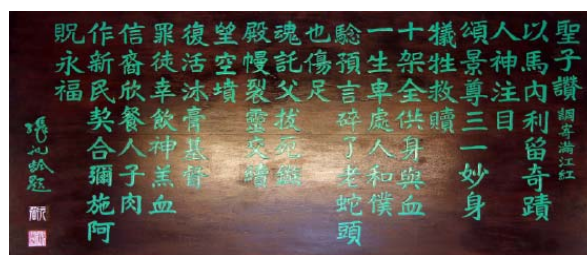 聖子讚 調寄滿江紅
以馬內利留奇蹟
人神注目
頌景尊三一妙身
犧牲救贖
十架全供身與血
一生卑處人和僕
驗預言碎了老蛇頭
也傷足
魂託父拔死
殿幔裂靈交
望空墳
復活沐膏基督
罪徒幸飲神羔血
信裔欣餐人子肉
作新民契合彌施阿
貺永福
齡題